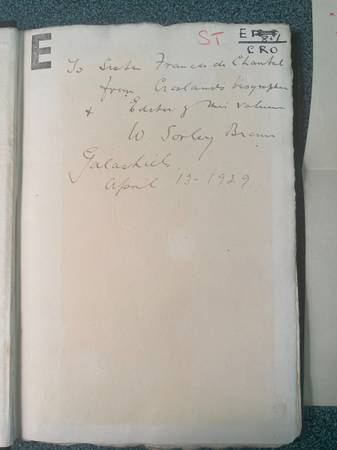 E
ST
CRO
To Sister Frances de Chantal
from Crosland's biographer
& Editor of this volume
W Sorley Brown
Galashiels
April 13-1929